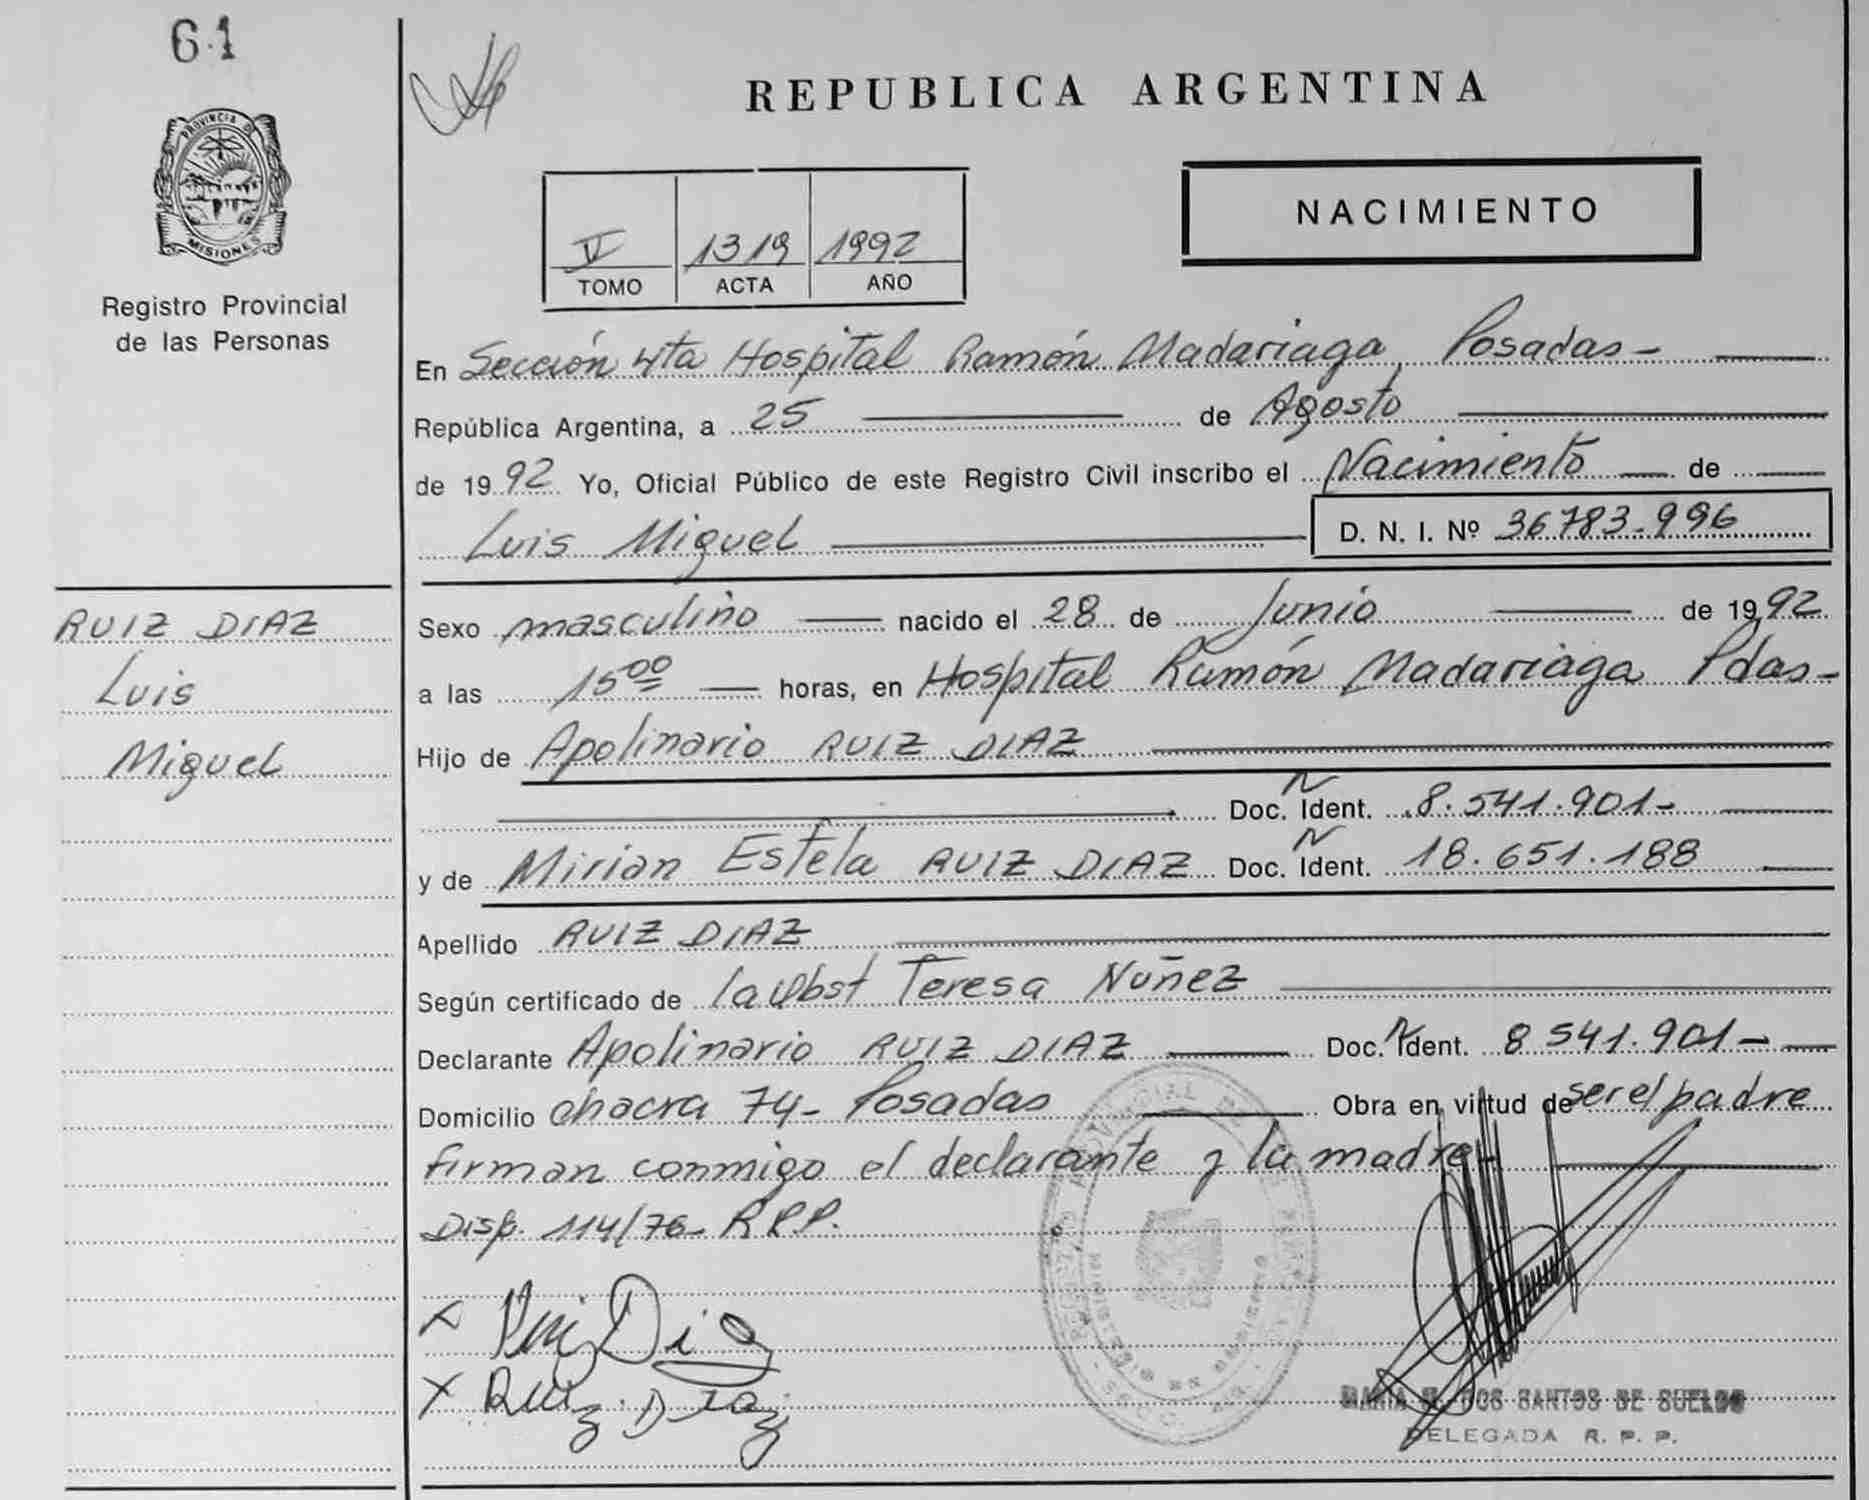 61
REPUBLICA ARGENTINA
PROVINCIA DE
MISIONES
Registro Provincial
de las Personas
V 1319 1992
TOMO ACTA AÑO
NACIMIENTO
En Sección 4ta Hospital Ramón Madariaga, Posadas-
República Argentina, a 25 de Agosto
de 1992 Yo, Oficial Público de este Registro Civil inscribo el Nacimiento de
Luis Miguel D. N. I. Nº 36783.996
RUIZ DIAZ
Luis
Miguel
Sexo masculino nacido el 28 de Junio de 1992
a las 15 00 horas, en Hospital Ramón Madariaga Pdas-
Hijo de Apolinario RUIZ DIAZ
Doc. Ident. 8.541.901-
y de Mirian Estela RUIZ DIAZ Doc. Ident. 18.651.188
Apellido RUIZ DIAZ
Según certificado de la Obst Teresa Nuñez
Declarante Apolinario RUIZ DIAZ Doc. Ident. 8 541.901-
Domicilio chacra 74- Posadas Obra en virtud de ser el padre
firman conmigo el declarante y la madre-
Disp. 114/76- R.P.P.
x Ruiz Diaz
x Ruiz Diaz
MARIA DOS SANTOS DE SUELDO
DELEGADA R. P. P.